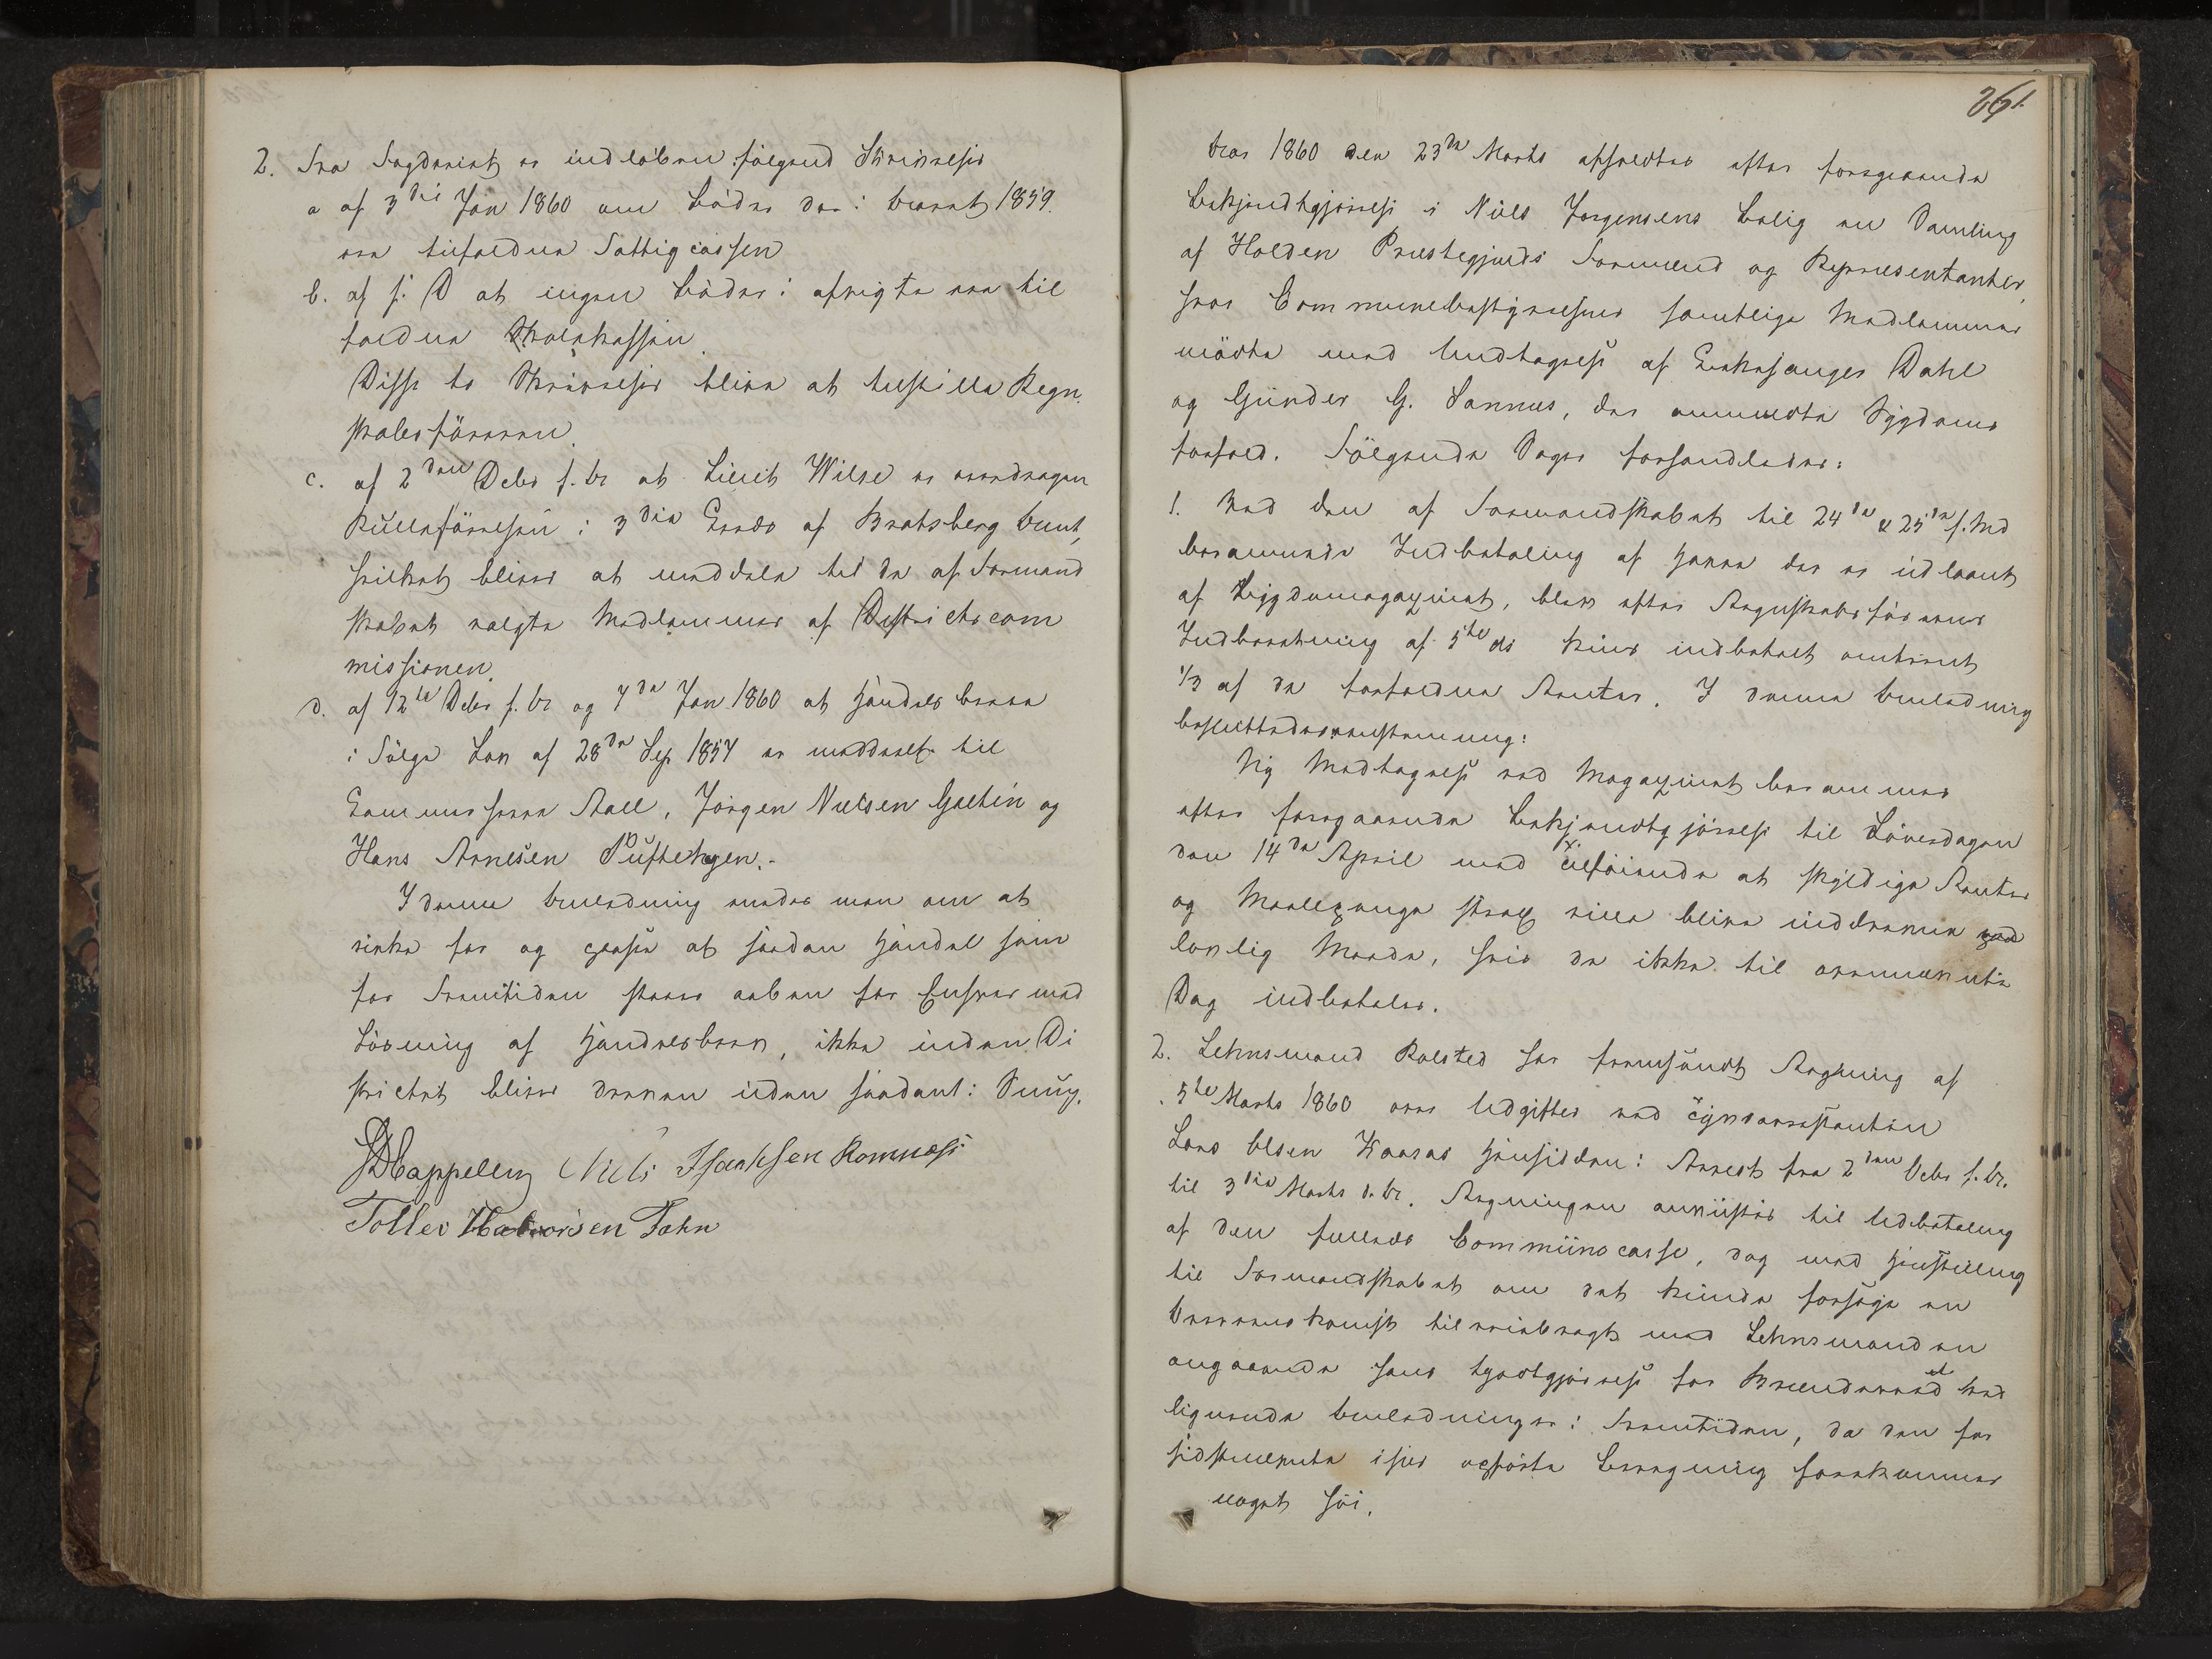 2. Fra Fogderiet er indløben følgend Skrivelser
a af 3die Jan 1860 om Bøder der i Aaret 1859.
ere tilfaldne Fattigcassen
b. af s. D at ingen Bøder i afvigte ere til
faldne Skolekassen.
Disse to Skrivelser bliver at tilstille Regn
skabsføreren.
c. af 2den Debr f. Ar at Lieut Wilse er overdragen
Rulleførelsen i 3die Esedr af Bratsberg Amt,
hvilket bliver at meddele til de af Formand
skabet valgte Medlemmer af Districtscom
missionen.
d. af 12te Debr f. Ar og 7de Jan 1860 at Handels breve
i Følge Lov af 28de Sep 1857 er meddeelt til
Staal, Jørgen Nielsen Gjeltin og
Hans Arnesen
I denne Anledning enedes man om at
virke for og at saadan Handel som
for Fremtiden staaer aaben for Enhver med
Løsning af Handelsbrev, ikke inden Di
strictet bliver dreven uden saadant i Sinn.
DCappelen Niels Isaksen Romnæss
Tollev Halvorsen Dahn
261.
Aar 1860 den 23de Marts afholdtes efter foregaaende
Bekjendtgjørelse i Niels Jørgensens Bolig en Samling
af Holden Præstegjelds Formænd og Repræsentanter,
hvor Communebestyrelsens samtlige Medlemmer
mødte med Undtagelse af Dahl
og Gunder G. Sannes, der anmeldte Sygdoms
forfald. Følgende Sager forhandledes:
1. Ved den af Formandskabet til 24de & 25de f. Md
berammede Indbetaling af Korn der er udlaant
af Bygdemagazinet, blev efter Regnskabsførerens
Indberetning af 5te ds kun indbetalt omtrent
1/3 af de forfaldne Renter. I denne Anledning
besluttedes eenstemmig:
Ny Modtagelse ved Magazinet berammes
efter foregaaende Bekjendtgjørelse til Løverdagen
den 14de April med Tilføiende at skyldige Renter
og Maallepenge strax ville blive inddrevne ved
lovlig Maade, hvis de ikke til ovennævnte
Dag indbetales.
2. Lehnsmand Rolsted har fremsendt Regning af
5te Marts 1860 over Udgifter ved Tyvsarrestantin
Lars Olsen Waaras Hensidden i Arrest fra 2den Debr f. Ar.
til 3die Marts d. Ar. Regningen anvistes til Udbetaling
af den fælleds Communecasse, dog med Henstilling
til Formandskabet om det kunde forsøge en
Overenskomst tilveiebragt med Lehnsmanden
angaaende hans Godtgjørelse for Brændeved et ved
lignende Anledninger i Fremtiden, da den for
sidstnævnte især opførte Beregning forekommer
noget høi.